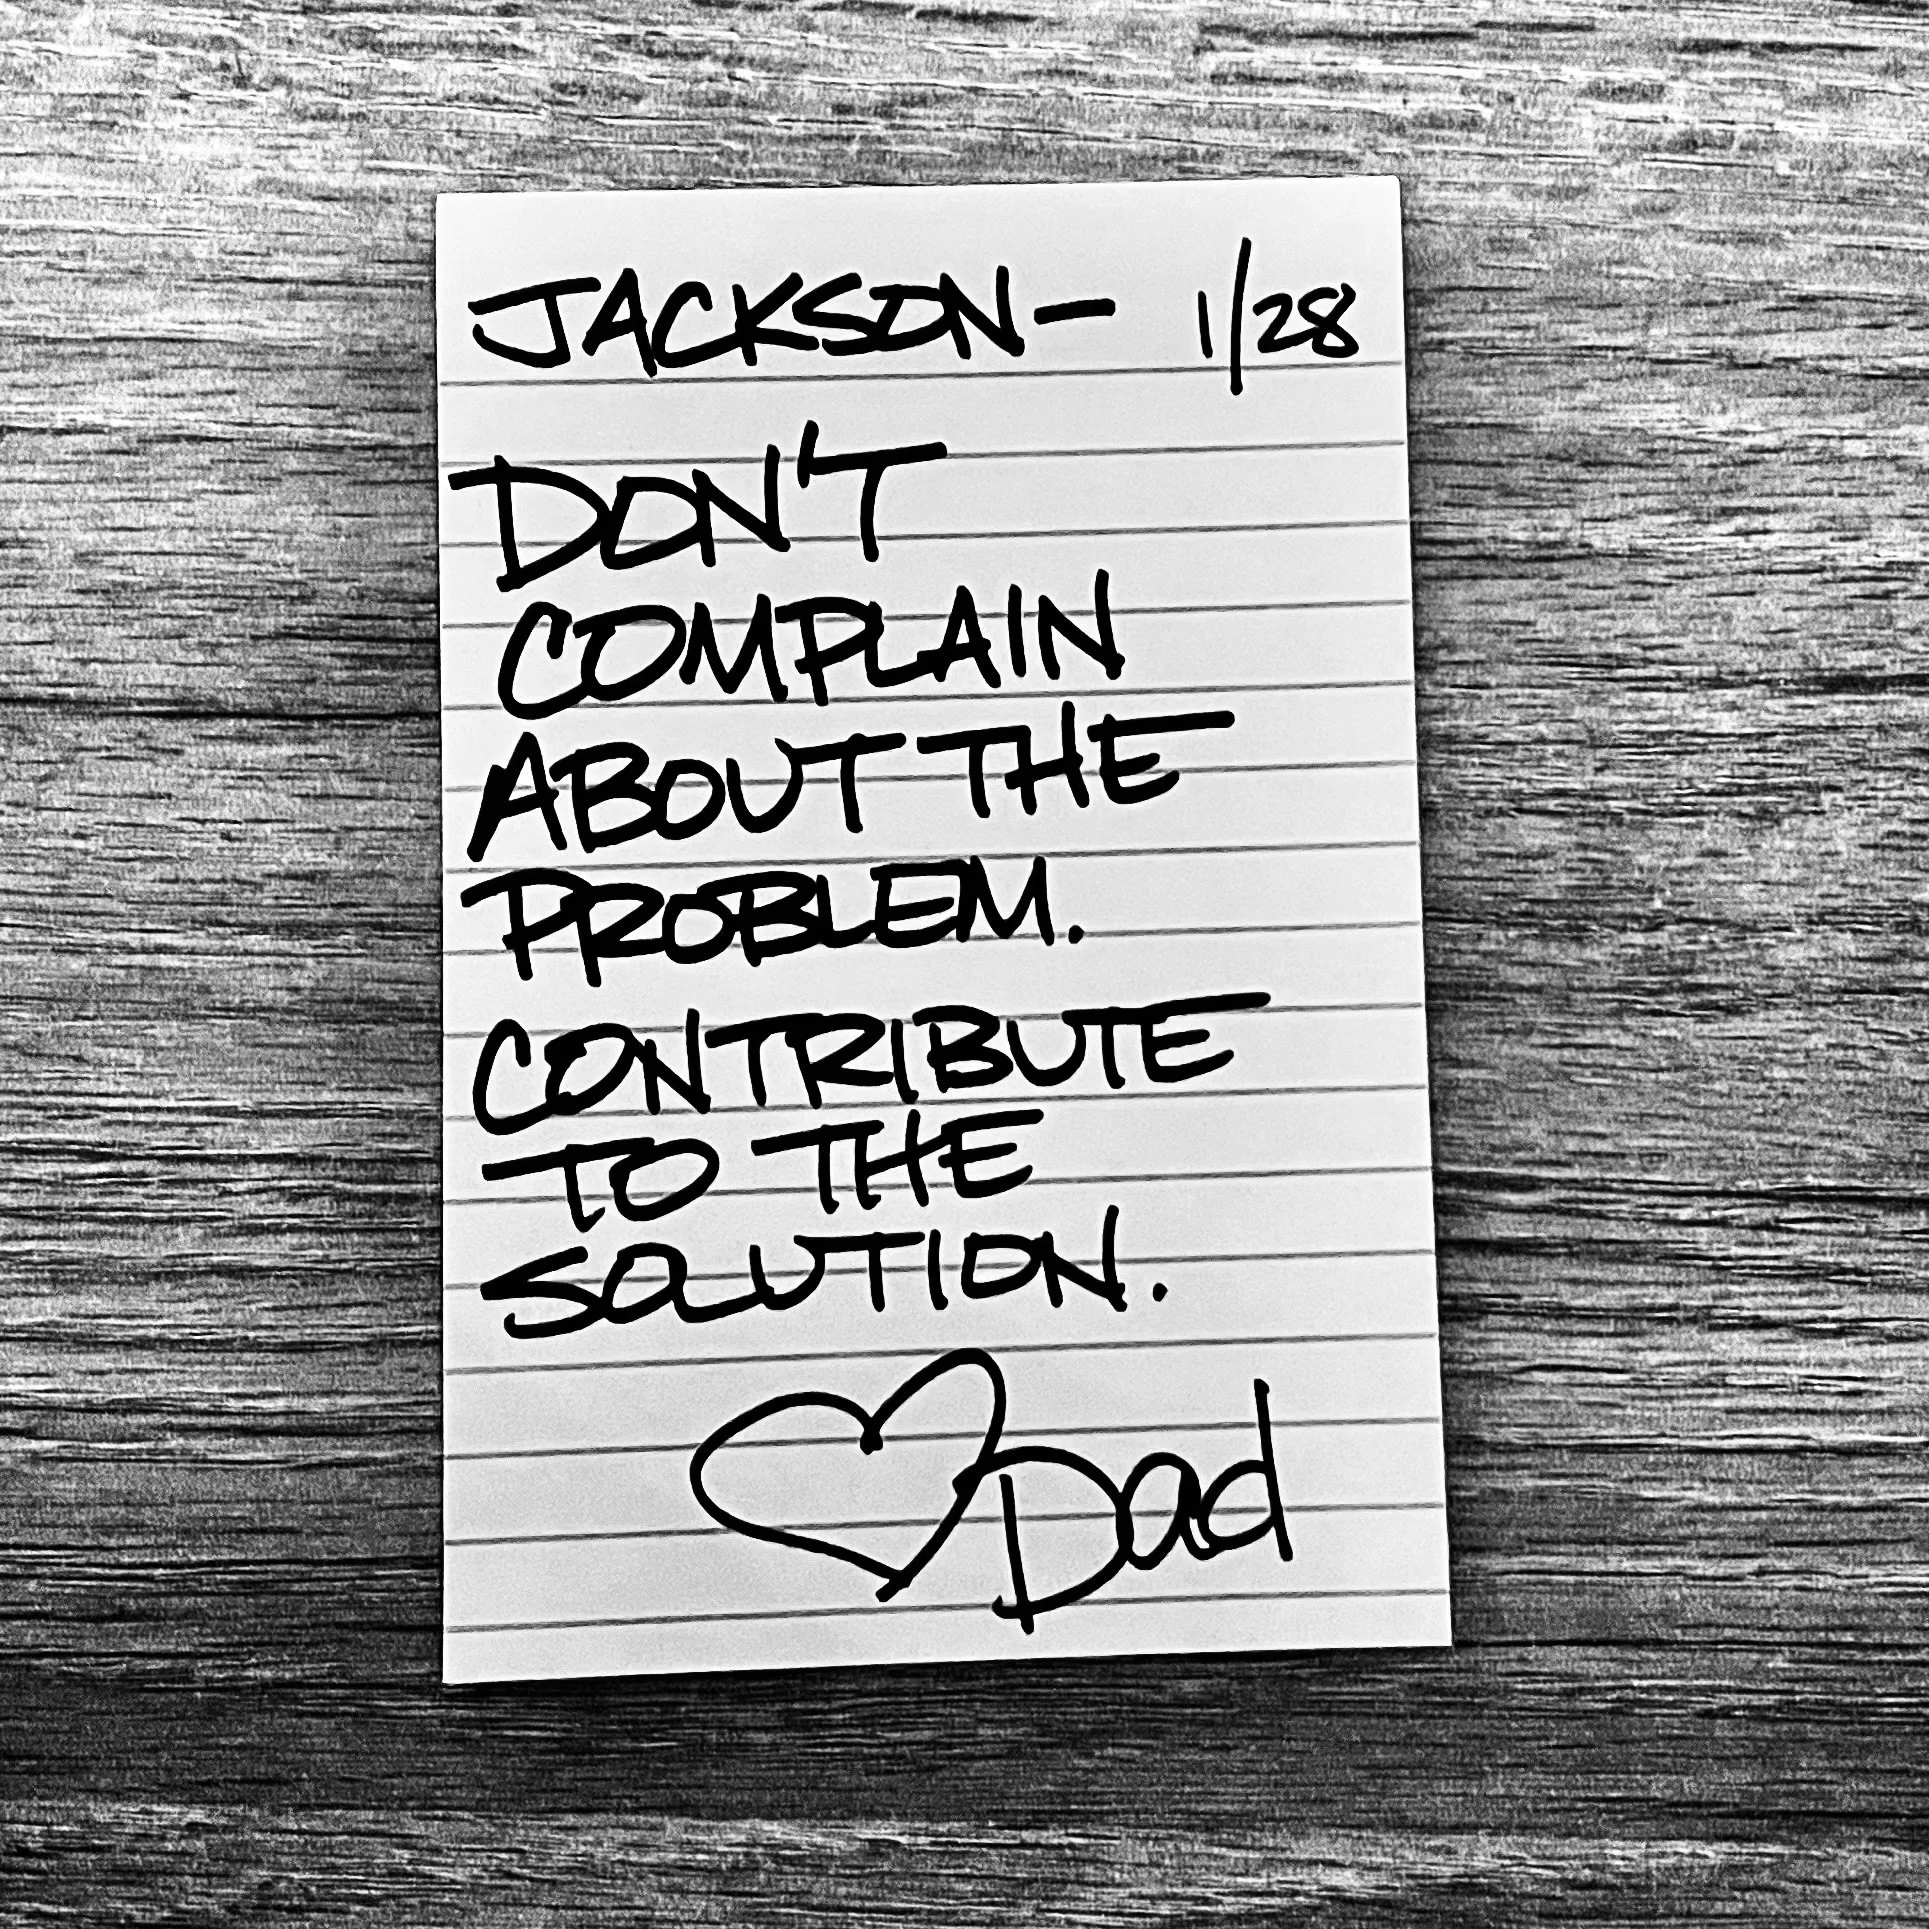 JACKSON- 1/28
DON'T
COMPLAIN
ABOUT THE
PROBLEM.
CONTRIBUTE
TO THE
SOLUTION.
♡ Dad